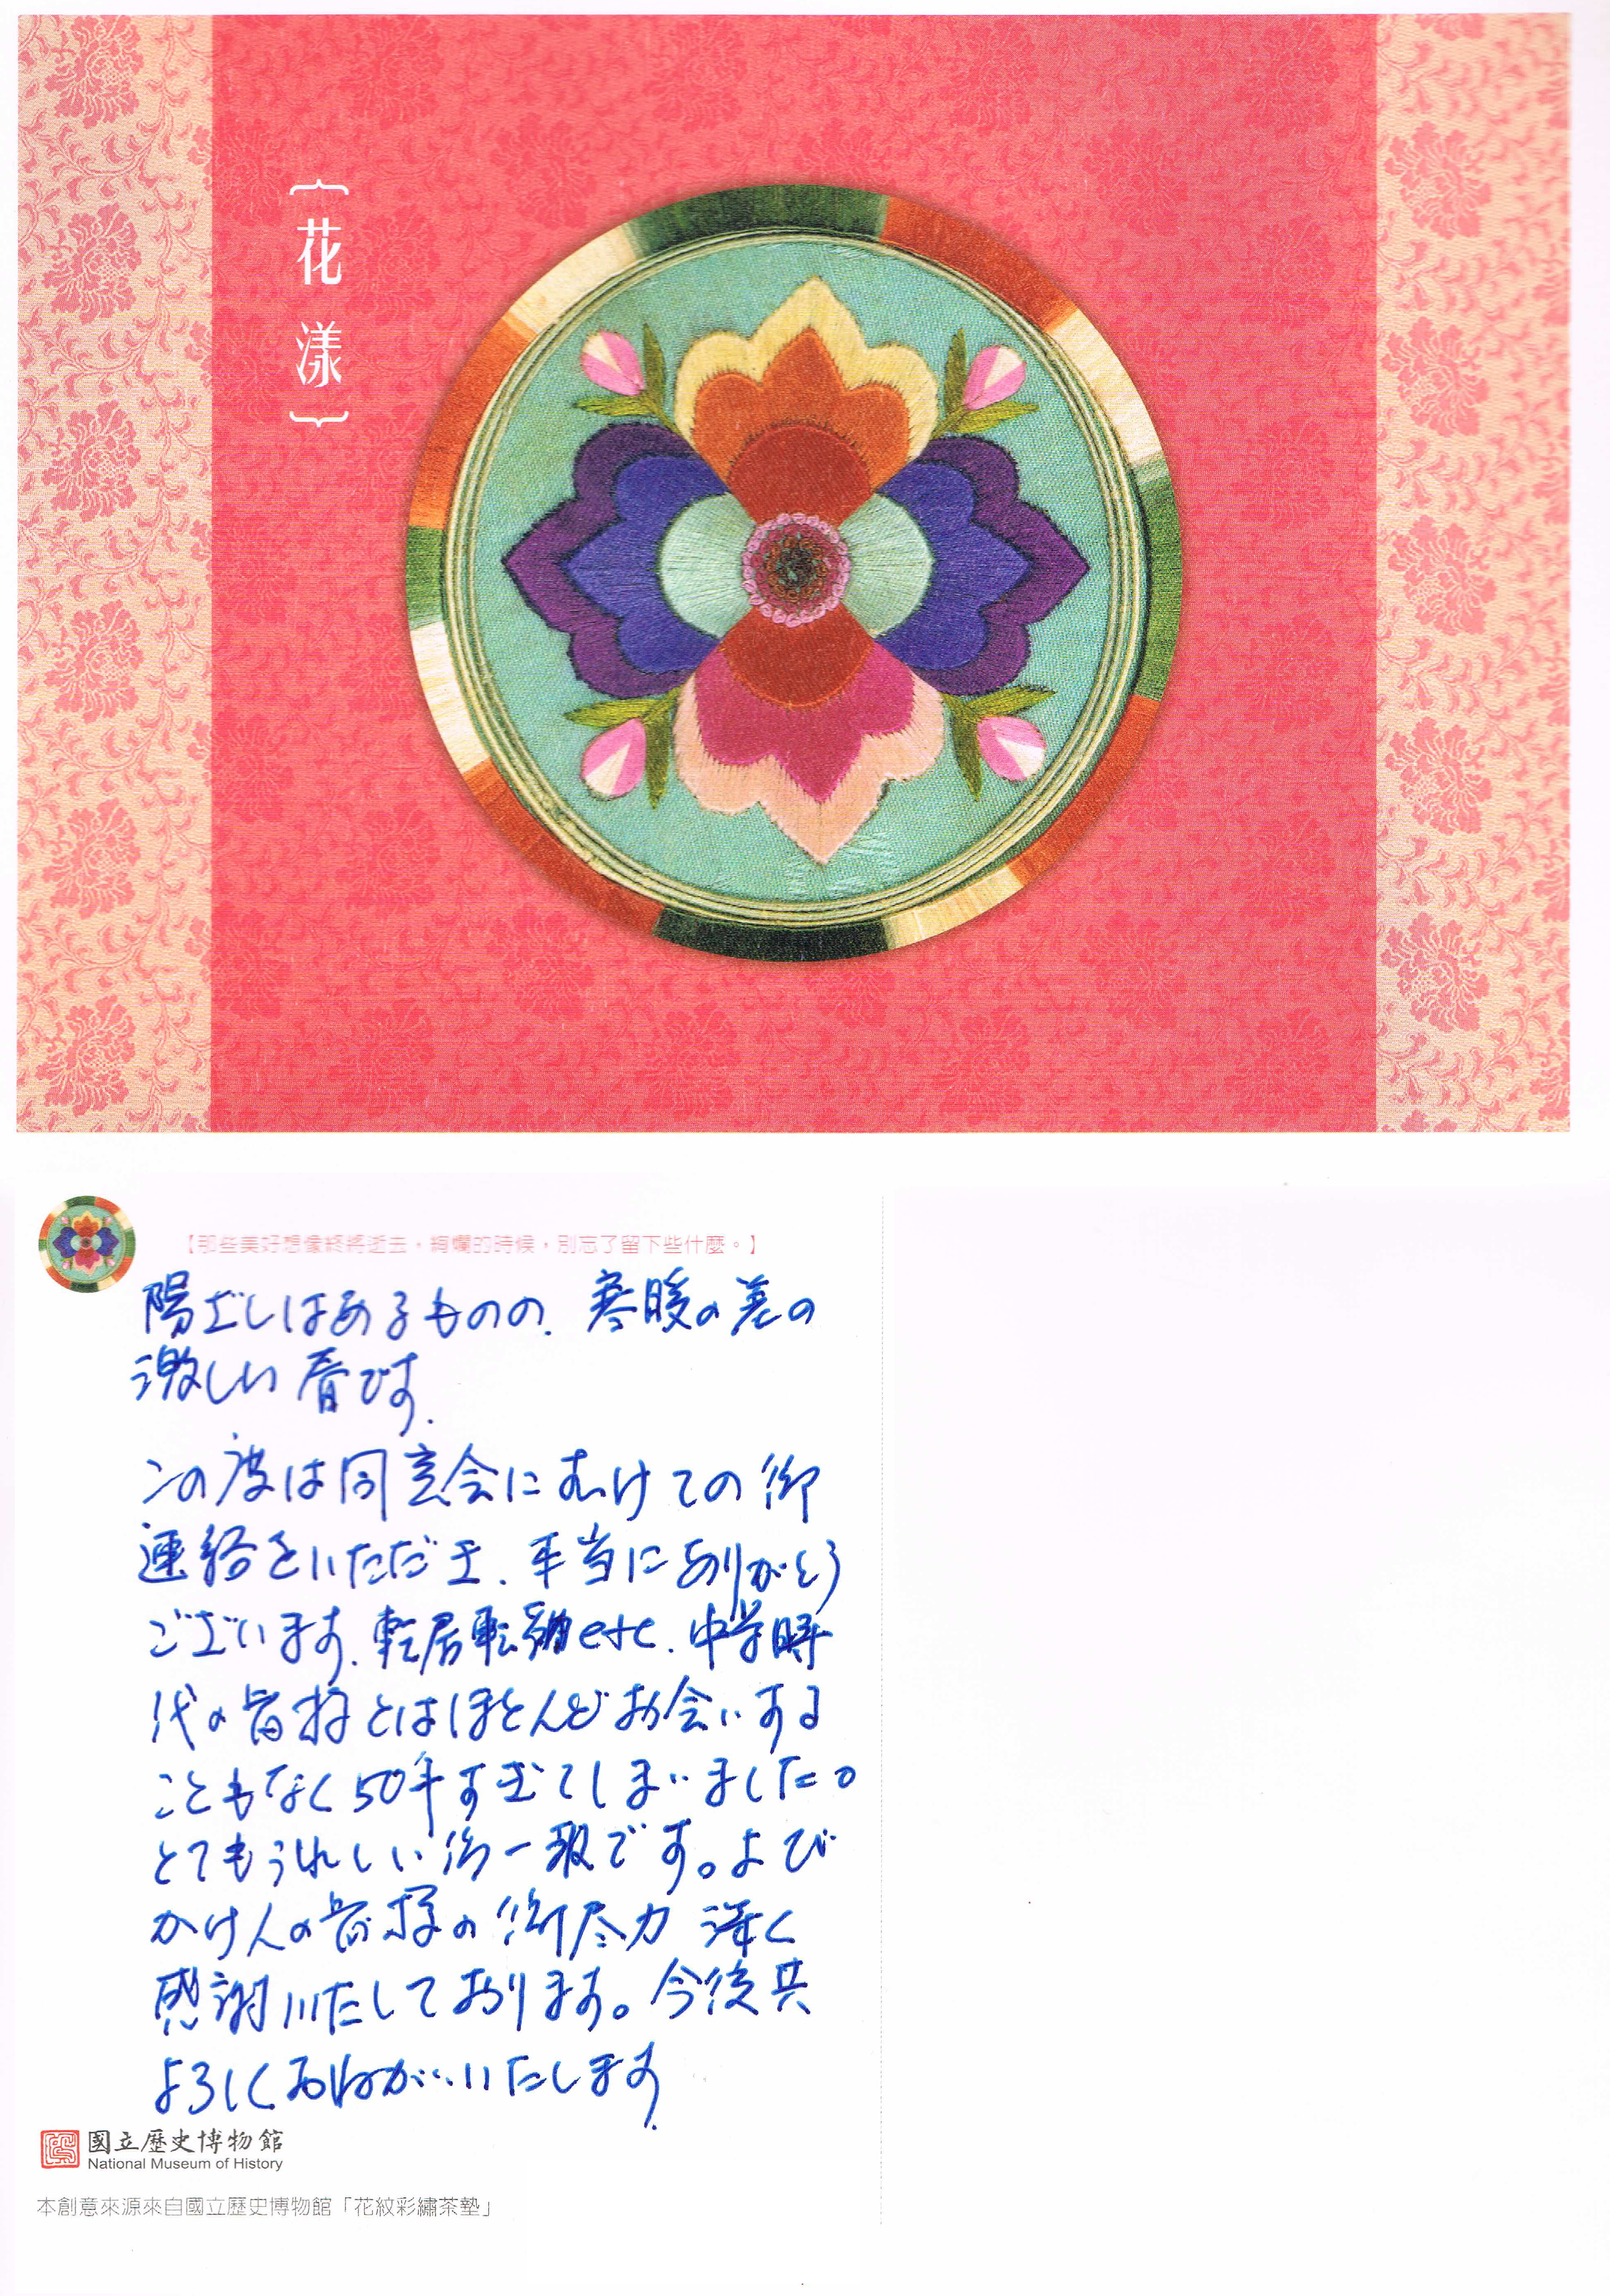 {花漾}
【那些美好想像終將逝去，絢爛的時候，別忘了留下些什麼。】
陽ざしはあるものの、寒暖の差の
激しい春です。
この度は同窓会にむけての御
連絡をいただき、本当にありがとう
ございます。転居転勤etc.中学時
代の皆様とはほとんどお会いする
こともなく50年すぎてしまいました。
とてもうれしい御一報です。よび
かけ人の皆様の御尽力 深く
感謝いたしております。今後共
よろしくおねがいいたします。
國立歷史博物館
National Museum of History
本創意來源來自國立歷史博物館「花紋彩繡茶墊」